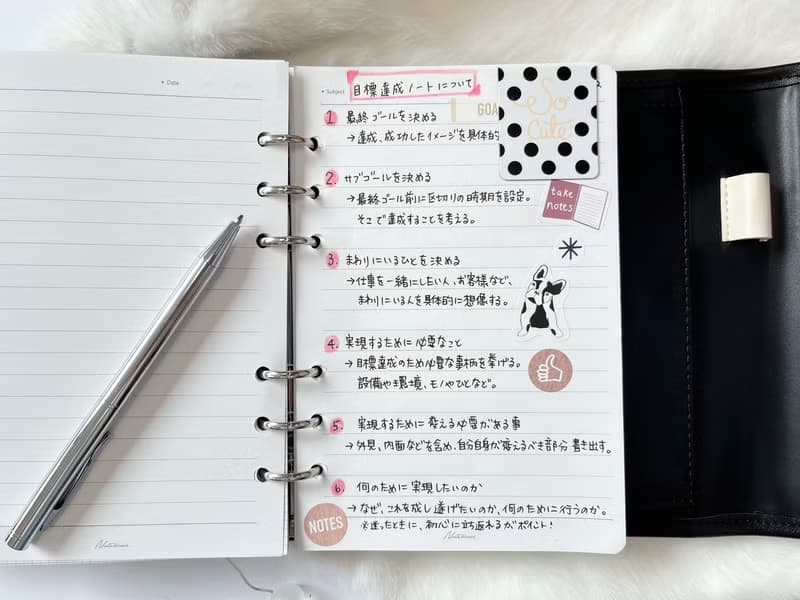 Date
Subject
目標達成ノートについて
GOA
So
Cute
1 最終ゴールを決める
→達成、成功したイメージを具体的
2. サブゴールを決める
→最終ゴール前に区切りの時期を設定。
そこで達成することを考える。
take
notes
3. まわりにいるひとを決める
→仕事を一緒にしたい人、お客様など、
まわりにいる人を具体的に想像する。
4. 実現するために必要なこと
→目標達成のため必要な事柄を挙げる。
設備や環境、モノやひとなど。
5. 実現するために変える必要がある事
→外見、内面などを含め、自分自身が変えるべき部分書き出す。
6. 何のために実現したいのか
→なぜ、これを成し遂げたいのか、何のために行うのか。
※迷ったときに、初心に立ち返れるがポイント!
NOTES